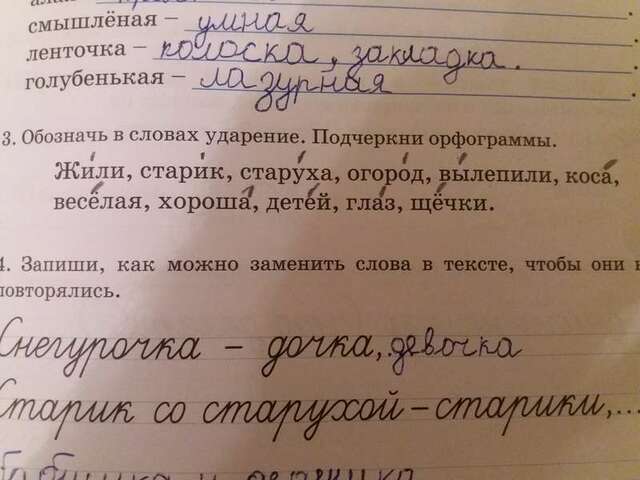 смышлёная – умная.
ленточка – полоска, закладка.
голубенькая – лазурная.
3. Обозначь в словах ударение. Подчеркни орфограммы.
Жи́ли, стари́к, стару́ха, огоро́д, вы́лепили, коса́,
весёлая, хороша́, дете́й, гла́з, щёчки.
4. Запиши, как можно заменить слова в тексте, чтобы они
повторялись.
Снегурочка – дочка, девочка
Старик со старухой – старики,...